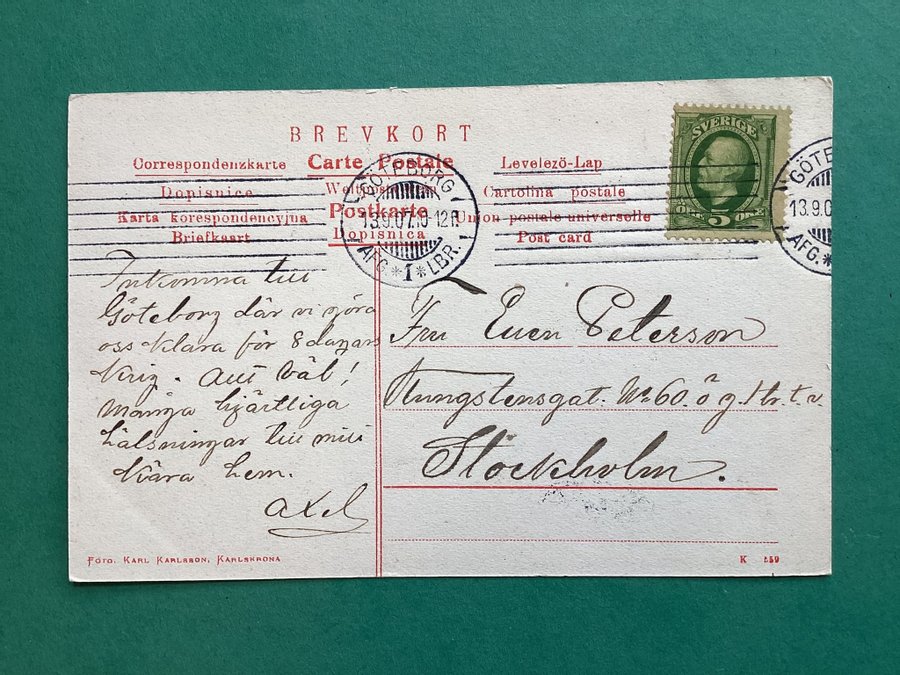 BREVKORT
Correspondenzkarte Carte Postale Levelezö-Lap
Dopisnice Weltpostverein Cartolina postale
Karta korespondencyjna Postkarte Union postale universelle
Briefkaart Dopisnica Post card
SVERIGE
ÖRE 5 ÖRE
GÖTEBORG
13.9.07.10-12F.
AFG. *1* LBR.
GÖTE
13.9.0
AFG. *
Inkomna till
Göteborg där vi göra
oss klara för 8 dagars
krig. Allt väl!
Många hjärtliga
hälsningar till mitt
kära hem.
Axel
Fru Peterson
Kungstensgat. No 60. ö g. 1 tr. t.v.
Stockholm.
Foto. Karl Karlsson, Karlskrona
K 559